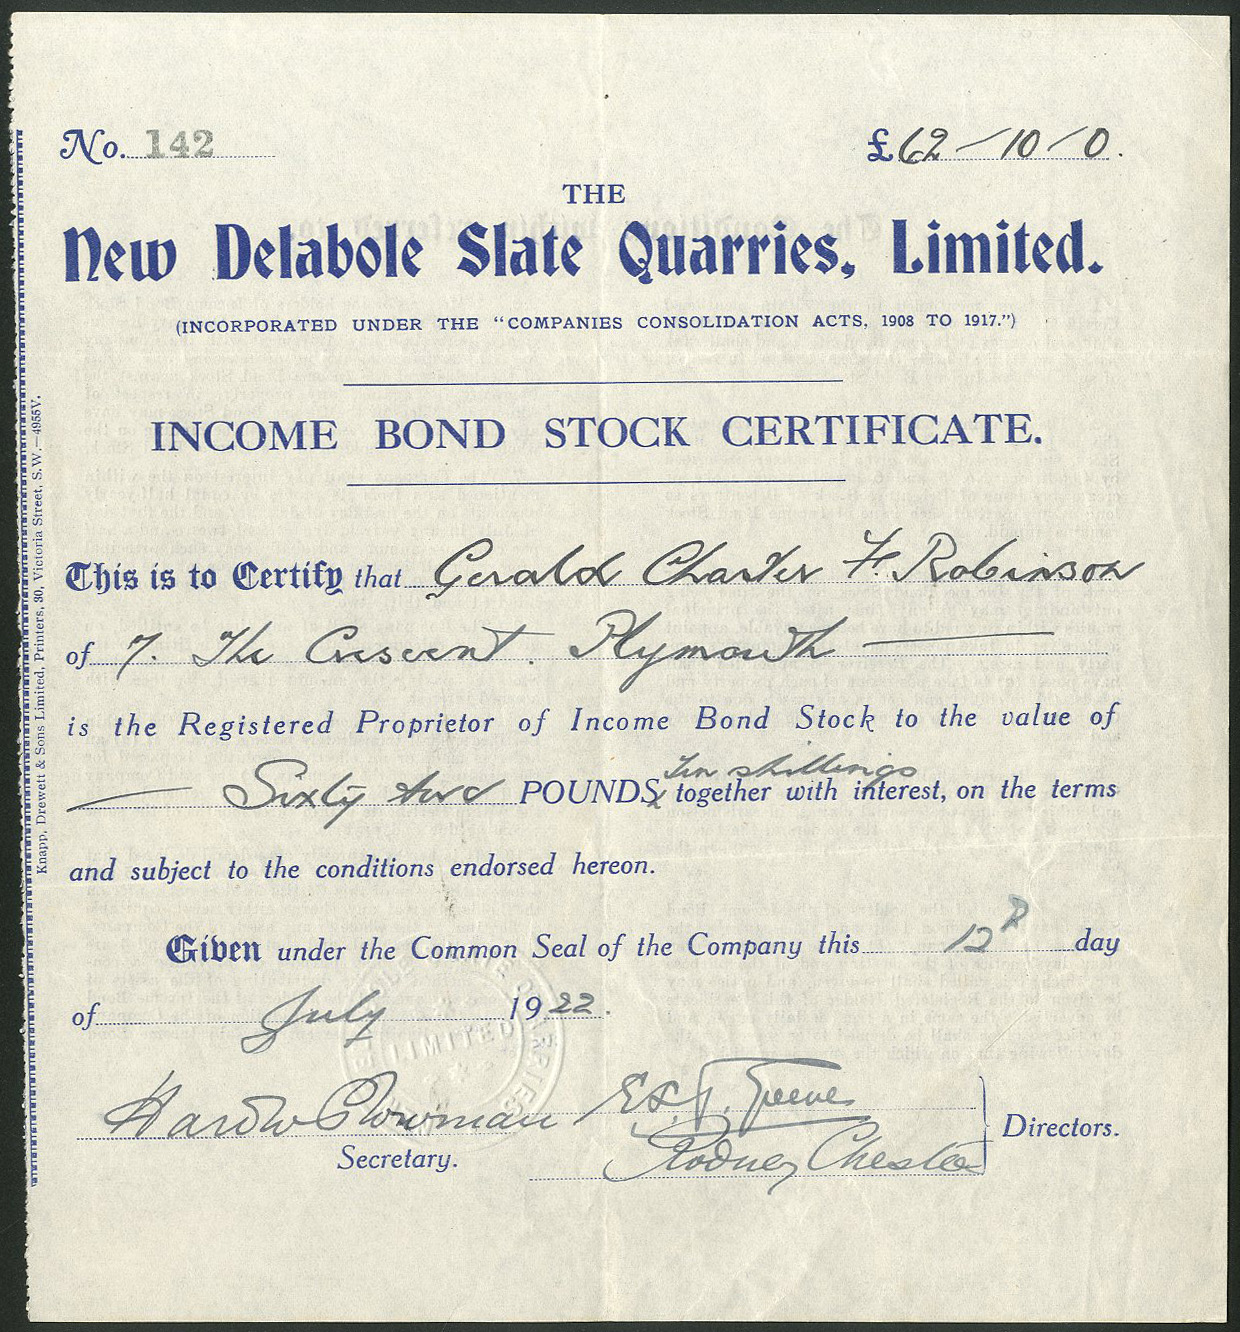 No. 142 £62-10-0.
THE
New Delabole Slate Quarries, Limited.
(INCORPORATED UNDER THE "COMPANIES CONSOLIDATION ACTS, 1908 TO 1917.")
INCOME BOND STOCK CERTIFICATE.
This is to Certify that Gerald Charter F. Robinson
of 7. The Crescent. Plymouth
is the Registered Proprietor of Income Bond Stock to the value of
Ten shillings
Sixty two POUNDS, together with interest, on the terms
and subject to the conditions endorsed hereon.
Given under the Common Seal of the Company this 12th day
of July 1922.
Secretary.
Rodney Chester
Directors.
LIMITED
Knapp, Drewett & Sons Limited, Printers, 30, Victoria Street, S.W.—4955V.